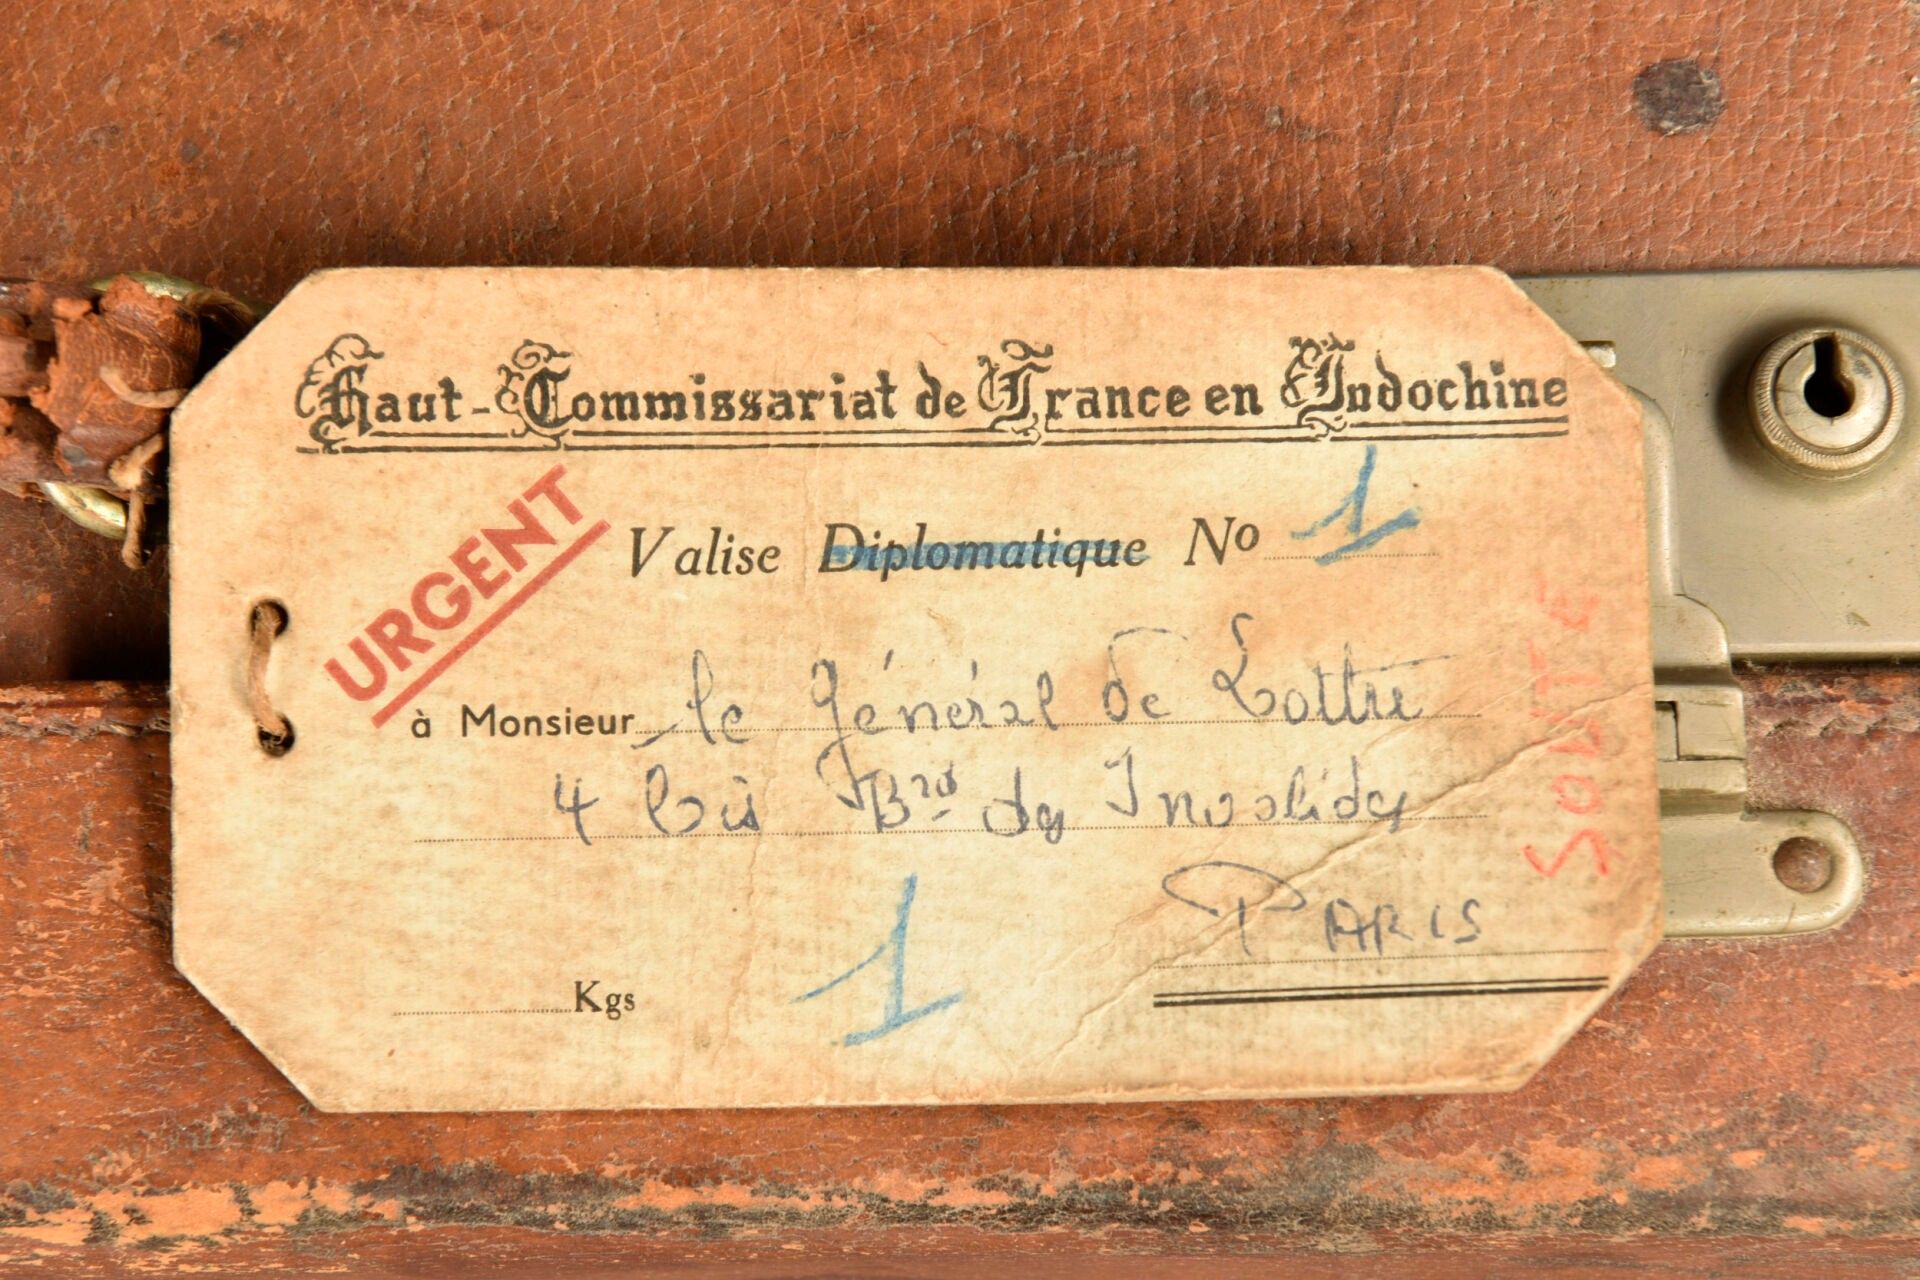 Haut-Commissariat de France en Indochine
URGENT
Valise Diplomatique No 1
à Monsieur le général de Lattre
4 bis Bd des Invalides
PARIS
Kgs
1